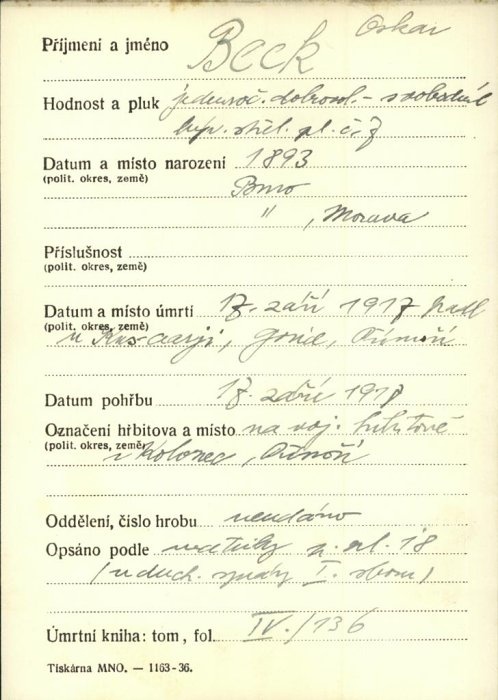 Příjmení a jméno Beck Oskar
Hodnost a pluk jednoroč. dobrovol. - svobodník
střel. pl. č. 7
Datum a místo narození 1893
(polit. okres, země) Brno
" , Morava
Příslušnost
(polit. okres, země)
Datum a místo úmrtí 17. září 1917 padl
(polit. okres, země)
u , , Přímoří
Datum pohřbu 17. září 1917
Označení hřbitova a místo na voj. hřbitově
(polit. okres, země)
, Přímoří
Oddělení, číslo hrobu neudáno
Opsáno podle matriky
(u duch. správy I. sboru)
Úmrtní kniha: tom, fol. IV./136
Tiskárna MNO. — 1163-36.